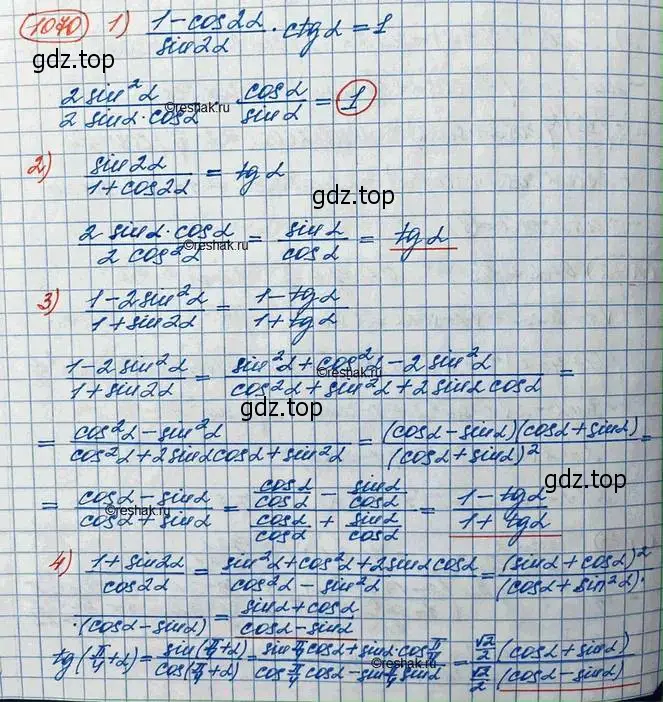 1070 1) (1-cos2α)/(sin2α) · ctgα = 1
gdz.top
(2sin²α)/(2sinα·cosα) · (cosα)/(sinα) = 1
©reshak.ru
2) (sin2α)/(1+cos2α) = tgα
gdz.top
(2sinα·cosα)/(2cos²α) = (sinα)/(cosα) = tgα
©reshak.ru
3) (1-2sin²α)/(1+sin2α) = (1-tgα)/(1+tgα)
(1-2sin²α)/(1+sin2α) = (sin²α+cos²α-2sin²α)/(cos²α+sin²α+2sinαcosα) =
©reshak.ru
gdz.top
= (cos²α-sin²α)/(cos²α+2sinαcosα+sin²α) = ((cosα-sinα)(cosα+sinα))/((cosα+sinα)²) =
gdz.top
= (cosα-sinα)/(cosα+sinα) = (cosα/cosα - sinα/cosα)/(cosα/cosα + sinα/cosα) = (1-tgα)/(1+tgα)
©reshak.ru
4) (1+sin2α)/(cos2α) = (sin²α+cos²α+2sinαcosα)/(cos²α-sin²α) = ((sinα+cosα)²)/((cosα+sin²α)·
·(cosα-sinα)) = (sinα+cosα)/(cosα-sinα)
tg(π/4+α) = (sin(π/4+α))/(cos(π/4+α)) = (sin π/4 cosα+sinα·cos π/4)/(cos π/4 cosα-sin π/4 sinα) = (√2/2 (cosα+sinα))/(√2/2 (cosα-sinα))
©reshak.ru
gdz.top